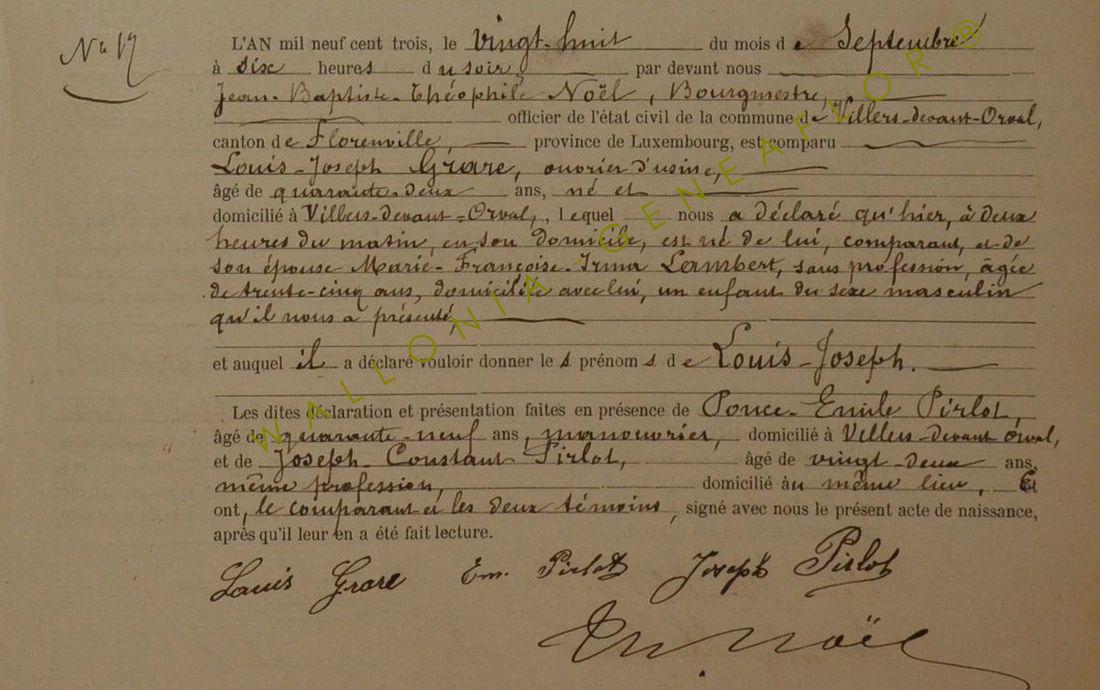 No 17
L'AN mil neuf cent trois, le vingt-huit du mois de Septembre
à six heures du soir, par devant nous
Jean-Baptiste-Théophile Noël, Bourgmestre,
officier de l'état civil de la commune de Villers-devant-Orval,
canton de Florenville, province de Luxembourg, est comparu
Louis-Joseph Grare, ouvrier d'usine,
âgé de quarante-deux ans, né et
domicilié à Villers-devant-Orval, lequel nous a déclaré qu'hier, à deux
heures du matin, en son domicile, est né de lui, comparant, et de
son épouse Marie-Françoise-Irma Lambert, sans profession, âgée
de trente-cinq ans, domiciliée avec lui, un enfant du sexe masculin
qu'il nous a présenté,
et auquel il a déclaré vouloir donner les prénoms de Louis-Joseph.
Les dites déclaration et présentation faites en présence de Ponce-Emile Pirlot,
âgé de quarante-neuf ans, manouvrier, domicilié à Villers-devant Orval,
et de Joseph-Constant Pirlot, âgé de vingt-deux ans,
même profession, domicilié au même lieu, Et
ont, le comparant et les deux témoins, signé avec nous le présent acte de naissance,
après qu'il leur en a été fait lecture.
Louis Grare Em. Pirlot Joseph Pirlot
Th. Noël
WALLONIA-GENEAFVOR®